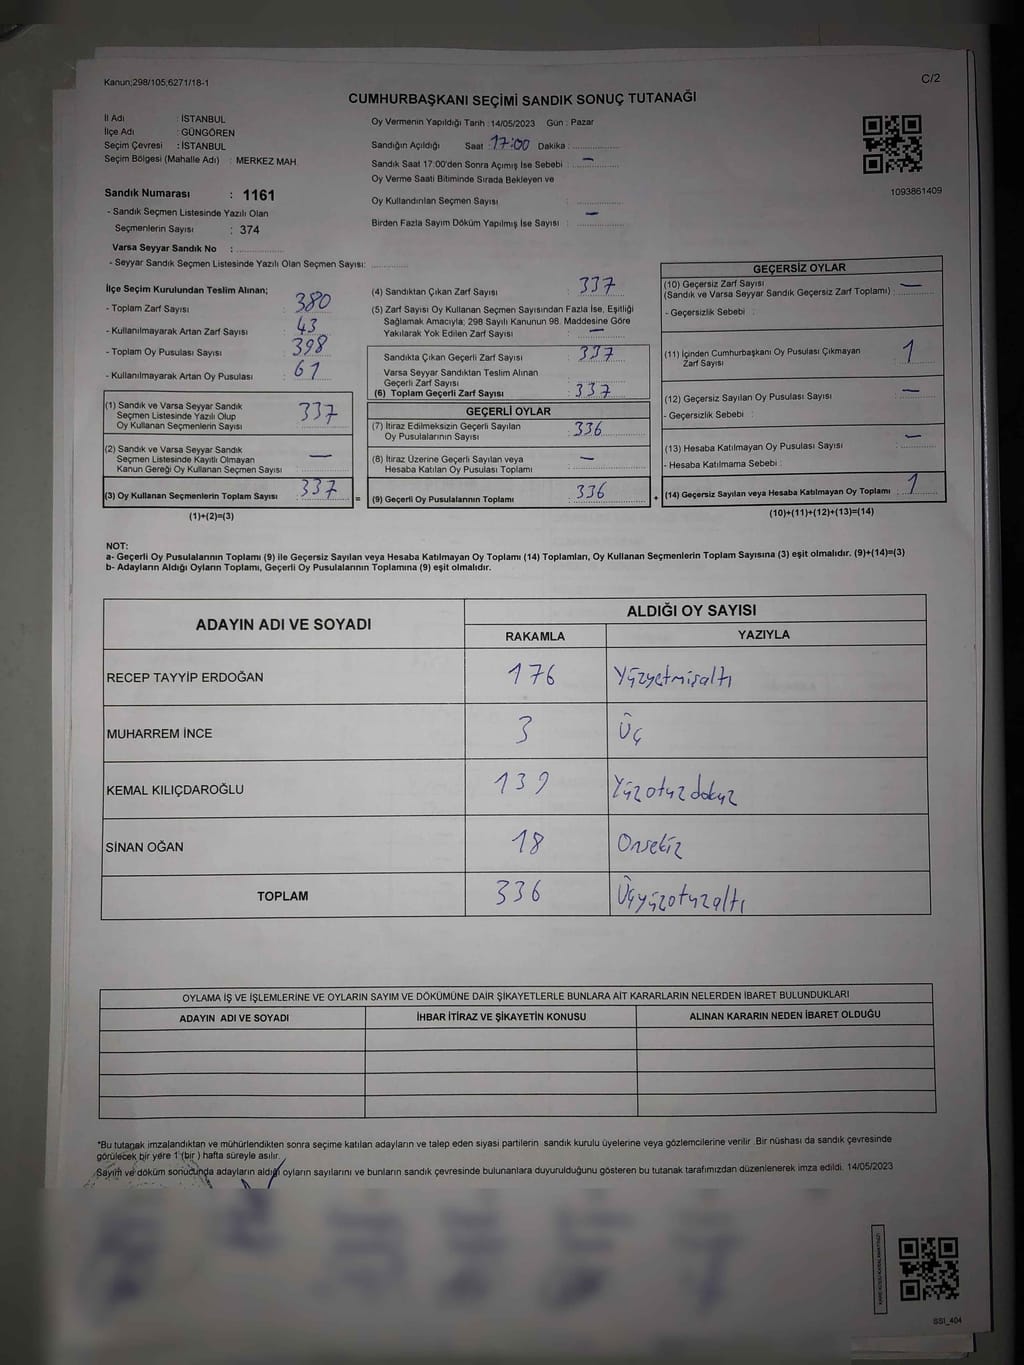 Kanun;298/105;6271/18-1
C/2
CUMHURBAŞKANI SEÇİMİ SANDIK SONUÇ TUTANAĞI
İl Adı : İSTANBUL
İlçe Adı : GÜNGÖREN
Seçim Çevresi : İSTANBUL
Seçim Bölgesi (Mahalle Adı) : MERKEZ MAH.
Sandık Numarası : 1161
- Sandık Seçmen Listesinde Yazılı Olan
Seçmenlerin Sayısı : 374
Varsa Seyyar Sandık No :
- Seyyar Sandık Seçmen Listesinde Yazılı Olan Seçmen Sayısı:
Oy Vermenin Yapıldığı Tarih : 14/05/2023 Gün : Pazar
Sandığın Açıldığı Saat : 17:00 Dakika :
Sandık Saat 17:00'den Sonra Açımış İse Sebebi : —
Oy Verme Saati Bitiminde Sırada Bekleyen ve
Oy Kullandırılan Seçmen Sayısı :
Birden Fazla Sayım Döküm Yapılmış İse Sayısı : —
1093861409
İlçe Seçim Kurulundan Teslim Alınan;
- Toplam Zarf Sayısı : 380
- Kullanılmayarak Artan Zarf Sayısı : 43
- Toplam Oy Pusulası Sayısı : 398
- Kullanılmayarak Artan Oy Pusulası : 61
(1) Sandık ve Varsa Seyyar Sandık
Seçmen Listesinde Yazılı Olup
Oy Kullanan Seçmenlerin Sayısı : 337
(2) Sandık ve Varsa Seyyar Sandık
Seçmen Listesinde Kayıtlı Olmayan
Kanun Gereği Oy Kullanan Seçmen Sayısı : —
(3) Oy Kullanan Seçmenlerin Toplam Sayısı : 337 =
(1)+(2)=(3)
(4) Sandıktan Çıkan Zarf Sayısı : 337
(5) Zarf Sayısı Oy Kullanan Seçmen Sayısından Fazla İse, Eşitliği
Sağlamak Amacıyla; 298 Sayılı Kanunun 98. Maddesine Göre
Yakılarak Yok Edilen Zarf Sayısı : —
Sandıkta Çıkan Geçerli Zarf Sayısı : 337
Varsa Seyyar Sandıktan Teslim Alınan
Geçerli Zarf Sayısı :
(6) Toplam Geçerli Zarf Sayısı : 337
GEÇERLİ OYLAR
(7) İtiraz Edilmeksizin Geçerli Sayılan
Oy Pusulalarının Sayısı : 336
(8) İtiraz Üzerine Geçerli Sayılan veya
Hesaba Katılan Oy Pusulası Toplamı : —
(9) Geçerli Oy Pusulalarının Toplamı : 336 +
GEÇERSİZ OYLAR
(10) Geçersiz Zarf Sayısı
(Sandık ve Varsa Seyyar Sandık Geçersiz Zarf Toplamı) : —
- Geçersizlik Sebebi :
(11) İçinden Cumhurbaşkanı Oy Pusulası Çıkmayan
Zarf Sayısı : 1
(12) Geçersiz Sayılan Oy Pusulası Sayısı : —
- Geçersizlik Sebebi :
(13) Hesaba Katılmayan Oy Pusulası Sayısı : —
- Hesaba Katılmama Sebebi :
(14) Geçersiz Sayılan veya Hesaba Katılmayan Oy Toplamı : 1
(10)+(11)+(12)+(13)=(14)
NOT:
a- Geçerli Oy Pusulalarının Toplamı (9) ile Geçersiz Sayılan veya Hesaba Katılmayan Oy Toplamı (14) Toplamları, Oy Kullanan Seçmenlerin Toplam Sayısına (3) eşit olmalıdır. (9)+(14)=(3)
b- Adayların Aldığı Oyların Toplamı, Geçerli Oy Pusulalarının Toplamına (9) eşit olmalıdır.
ADAYIN ADI VE SOYADI ALDIĞI OY SAYISI
RAKAMLA YAZIYLA
RECEP TAYYİP ERDOĞAN 176 Yüzyetmişaltı
MUHARREM İNCE 3 Üç
KEMAL KILIÇDAROĞLU 139 Yüzotuzdokuz
SİNAN OĞAN 18 Onsekiz
TOPLAM 336 Üçyüzotuzaltı
OYLAMA İŞ VE İŞLEMLERİNE VE OYLARIN SAYIM VE DÖKÜMÜNE DAİR ŞİKAYETLERLE BUNLARA AİT KARARLARIN NELERDEN İBARET BULUNDUKLARI
ADAYIN ADI VE SOYADI İHBAR İTİRAZ VE ŞİKAYETİN KONUSU ALINAN KARARIN NEDEN İBARET OLDUĞU
*Bu tutanak imzalandıktan ve mühürlendikten sonra seçime katılan adayların ve talep eden siyasi partilerin sandık kurulu üyelerine veya gözlemcilerine verilir .Bir nüshası da sandık çevresinde
görülecek bir yere 1 (bir ) hafta süreyle asılır.
Sayım ve döküm sonucunda adayların aldığı oyların sayılarını ve bunların sandık çevresinde bulunanlara duyurulduğunu gösteren bu tutanak tarafımızdan düzenlenerek imza edildi. 14/05/2023
SSI_404